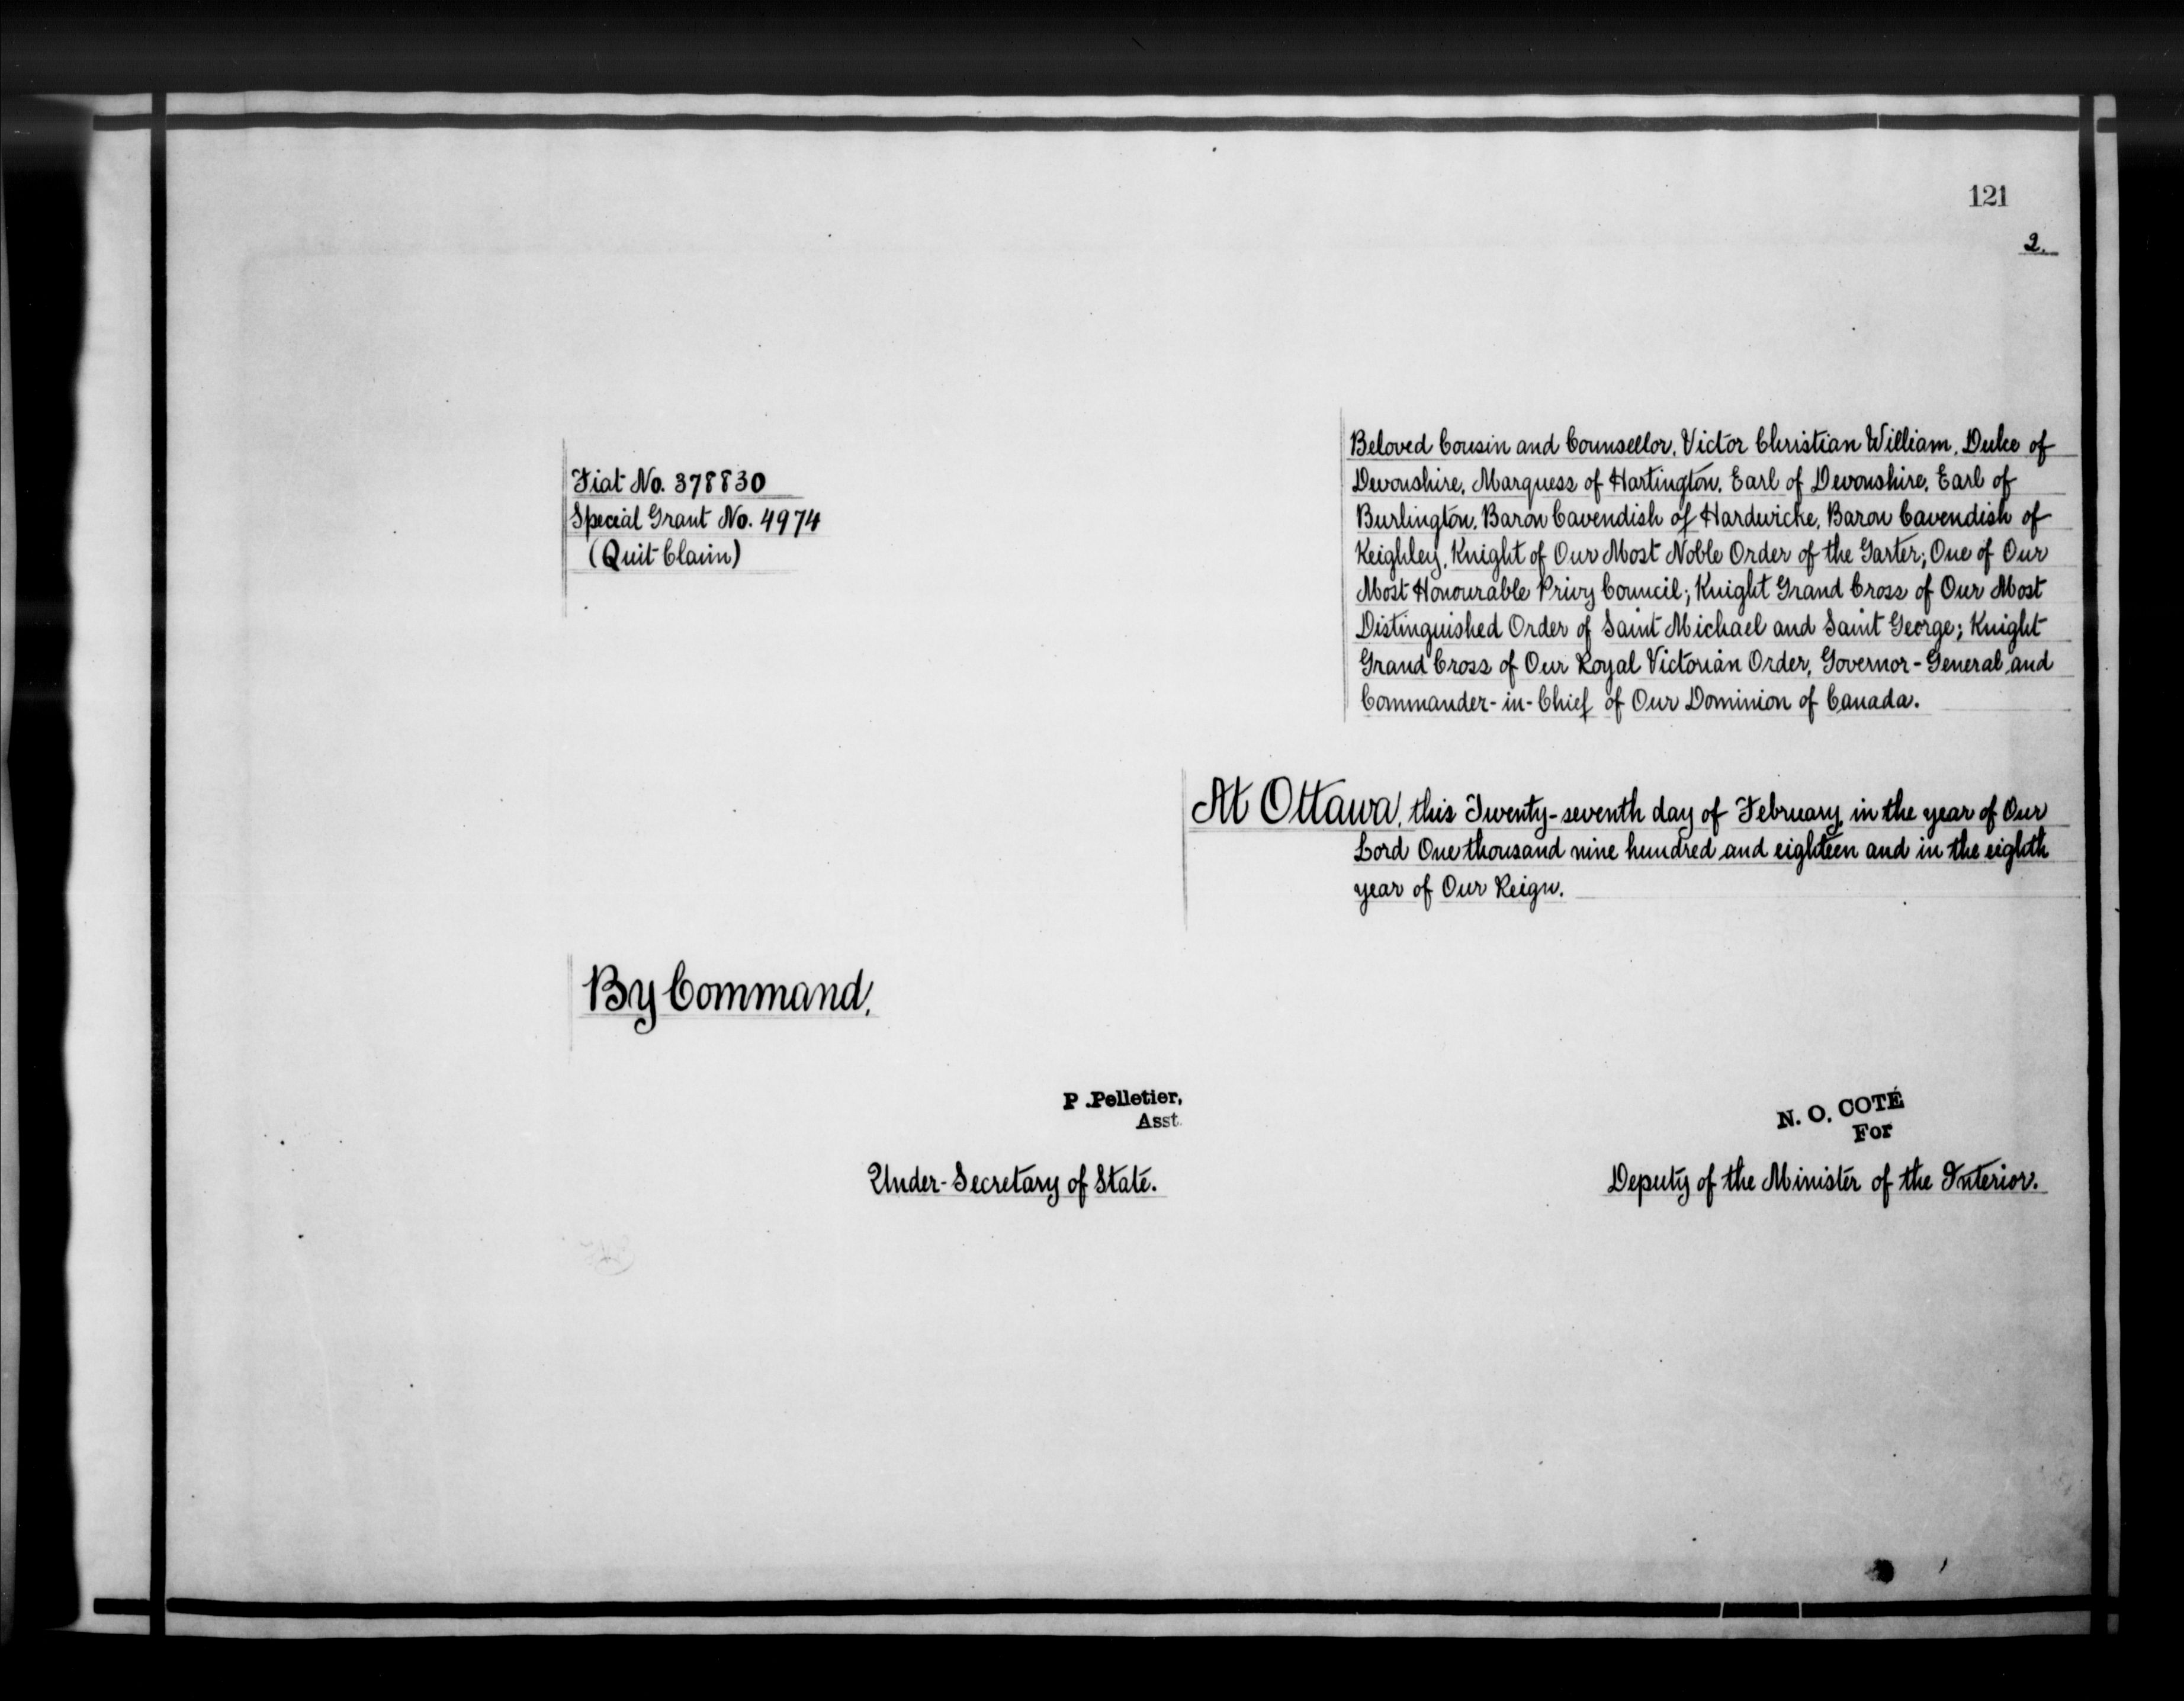 121
2.
Fiat No. 378830
Special Grant No. 4974
(Quit Claim)
Beloved Cousin and Counsellor, Victor Christian William, Duke of
Devonshire, Marquess of Hartington, Earl of Devonshire, Earl of
Burlington, Baron Cavendish of Hardwicke, Baron Cavendish of
Keighley, Knight of Our Most Noble Order of the Garter; One of Our
Most Honourable Privy Council; Knight Grand Cross of Our Most
Distinguished Order of Saint Michael and Saint George; Knight
Grand Cross of Our Royal Victorian Order, Governor-General and
Commander-in-Chief of Our Dominion of Canada.
At Ottawa, this Twenty-seventh day of February, in the year of Our
Lord One thousand nine hundred and eighteen and in the eighth
year of Our Reign.
By Command,
P. Pelletier,
Asst.
Under-Secretary of State.
N. O. COTÉ
For
Deputy of the Minister of the Interior.